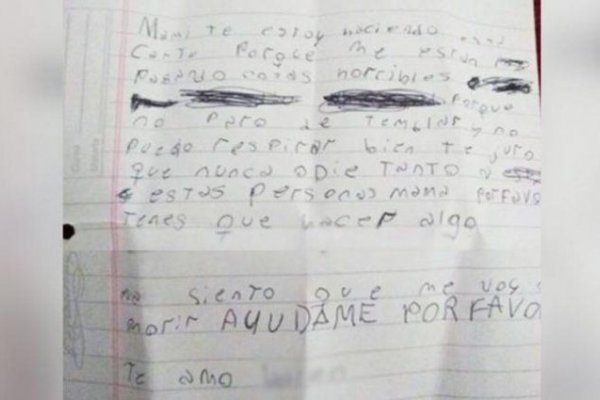 Mami te estoy haciendo esta
Carta Porque me estan
Pasando cosas horribles
Porque
no Paro de temblar y no
Puedo respirar bien te juro
que nunca odie tanto a
estas personas mama PORFAVO
Tenes que hacer algo
siento que me voy a
morir AYUDAME PORFAVO
Te amo